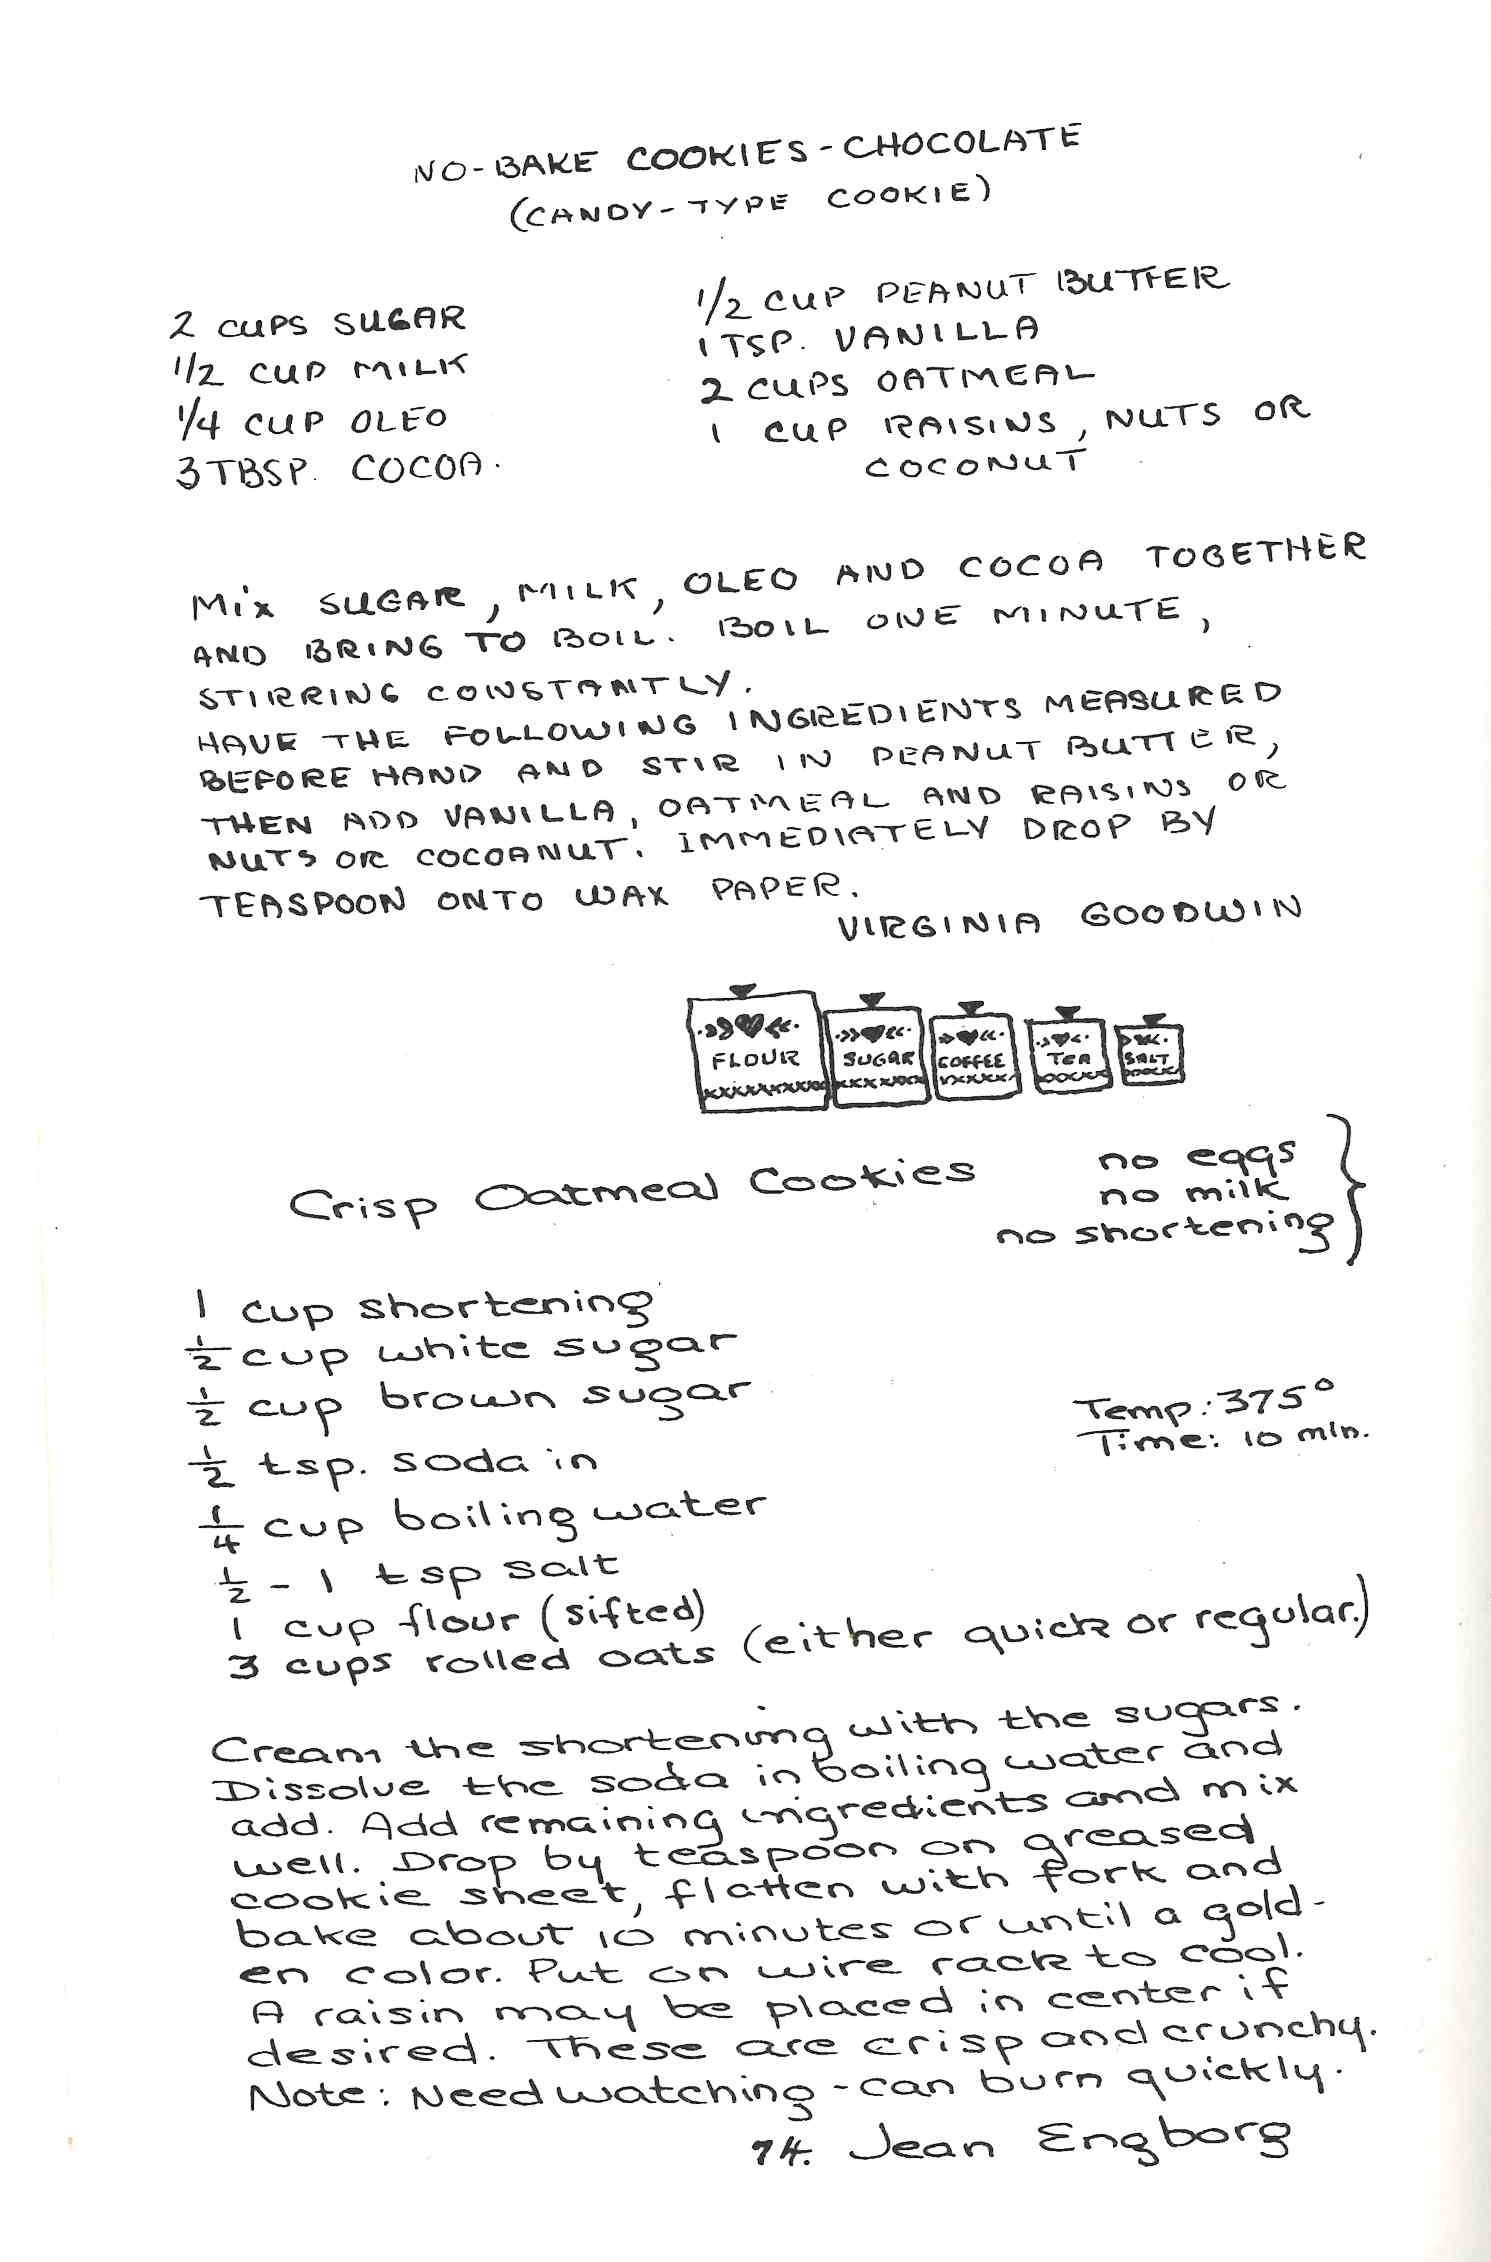 NO-BAKE COOKIES - CHOCOLATE
(CANDY-TYPE COOKIE)
2 CUPS SUGAR
1/2 CUP MILK
1/4 CUP OLEO
3 TBSP. COCOA.
1/2 CUP PEANUT BUTTER
1 TSP. VANILLA
2 CUPS OATMEAL
1 CUP RAISINS, NUTS OR
COCONUT
Mix SUGAR, MILK, OLEO AND COCOA TOGETHER
AND BRING TO BOIL. BOIL ONE MINUTE,
STIRRING CONSTANTLY.
HAVE THE FOLLOWING INGREDIENTS MEASURED
BEFORE HAND AND STIR IN PEANUT BUTTER,
THEN ADD VANILLA, OATMEAL AND RAISINS OR
NUTS OR COCOANUT. IMMEDIATELY DROP BY
TEASPOON ONTO WAX PAPER.
VIRGINIA GOODWIN
FLOUR SUGAR COFFEE TEA SALT
Crisp Oatmeal Cookies
no eggs
no milk
no shortening
1 cup shortening
1/2 cup white sugar
1/2 cup brown sugar
1/2 tsp. soda in
1/4 cup boiling water
1/2 - 1 tsp salt
1 cup flour (sifted)
3 cups rolled oats (either quick or regular.)
Temp: 375°
Time: 10 min.
Cream the shortening with the sugars.
Dissolve the soda in boiling water and
add. Add remaining ingredients and mix
well. Drop by teaspoon on greased
cookie sheet, flatten with fork and
bake about 10 minutes or until a gold-
en color. Put on wire rack to cool.
A raisin may be placed in center if
desired. These are crisp and crunchy.
Note: Need watching - can burn quickly.
74. Jean Engborg